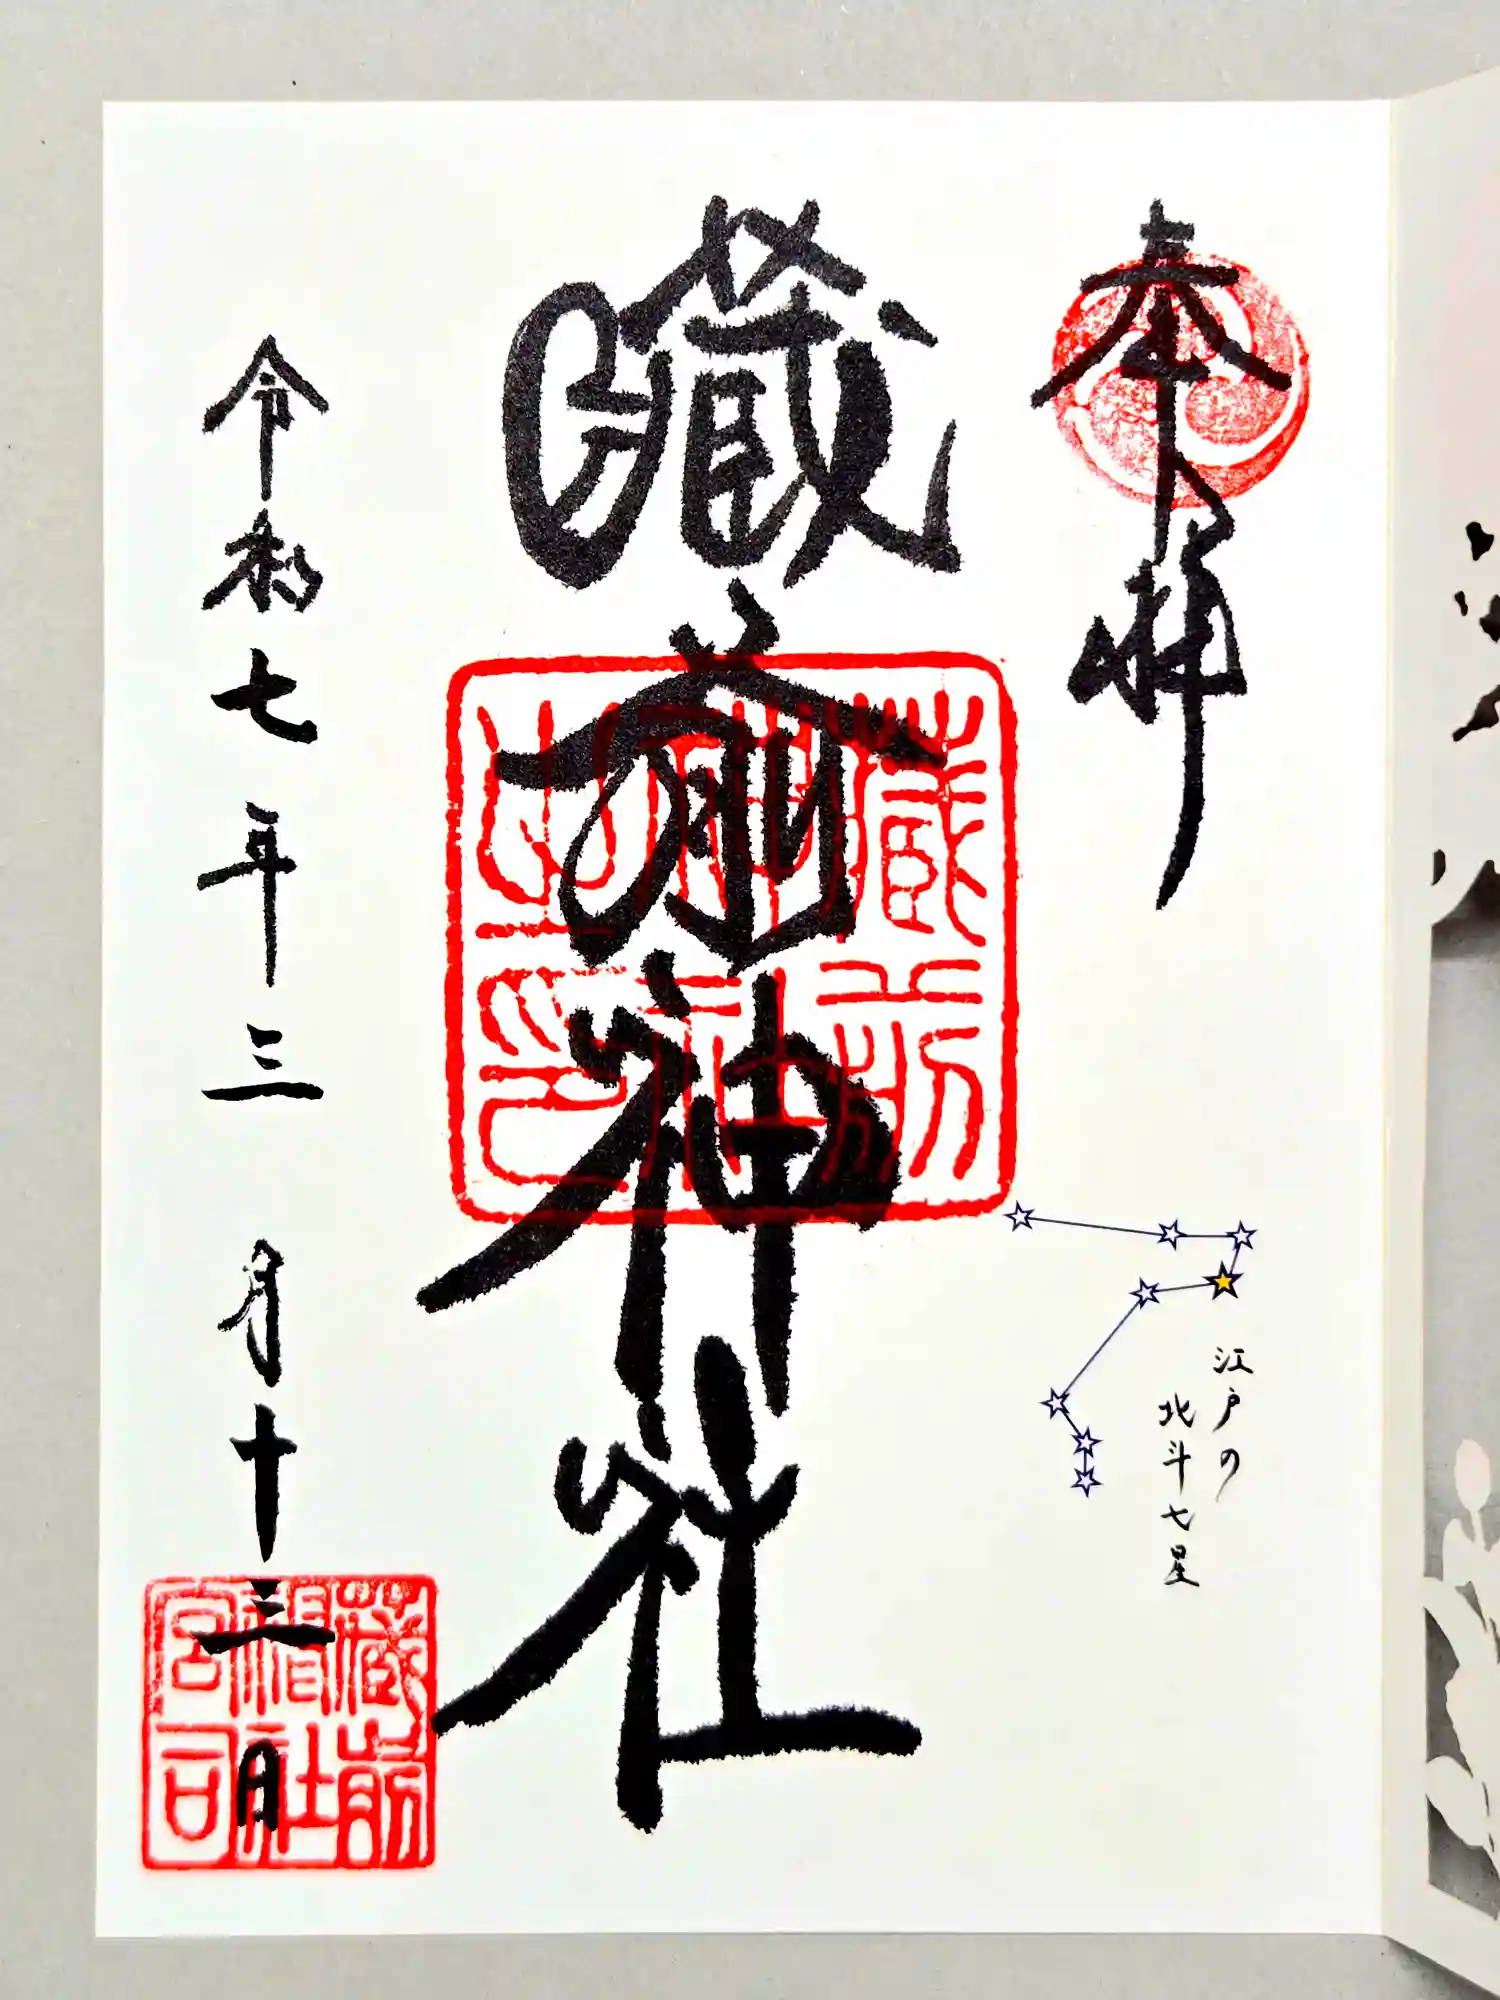 奉拝
藏前神社
令和七年三月十三日
江戸の
北斗七星
藏前
神社
之印
藏前
神社
宮司